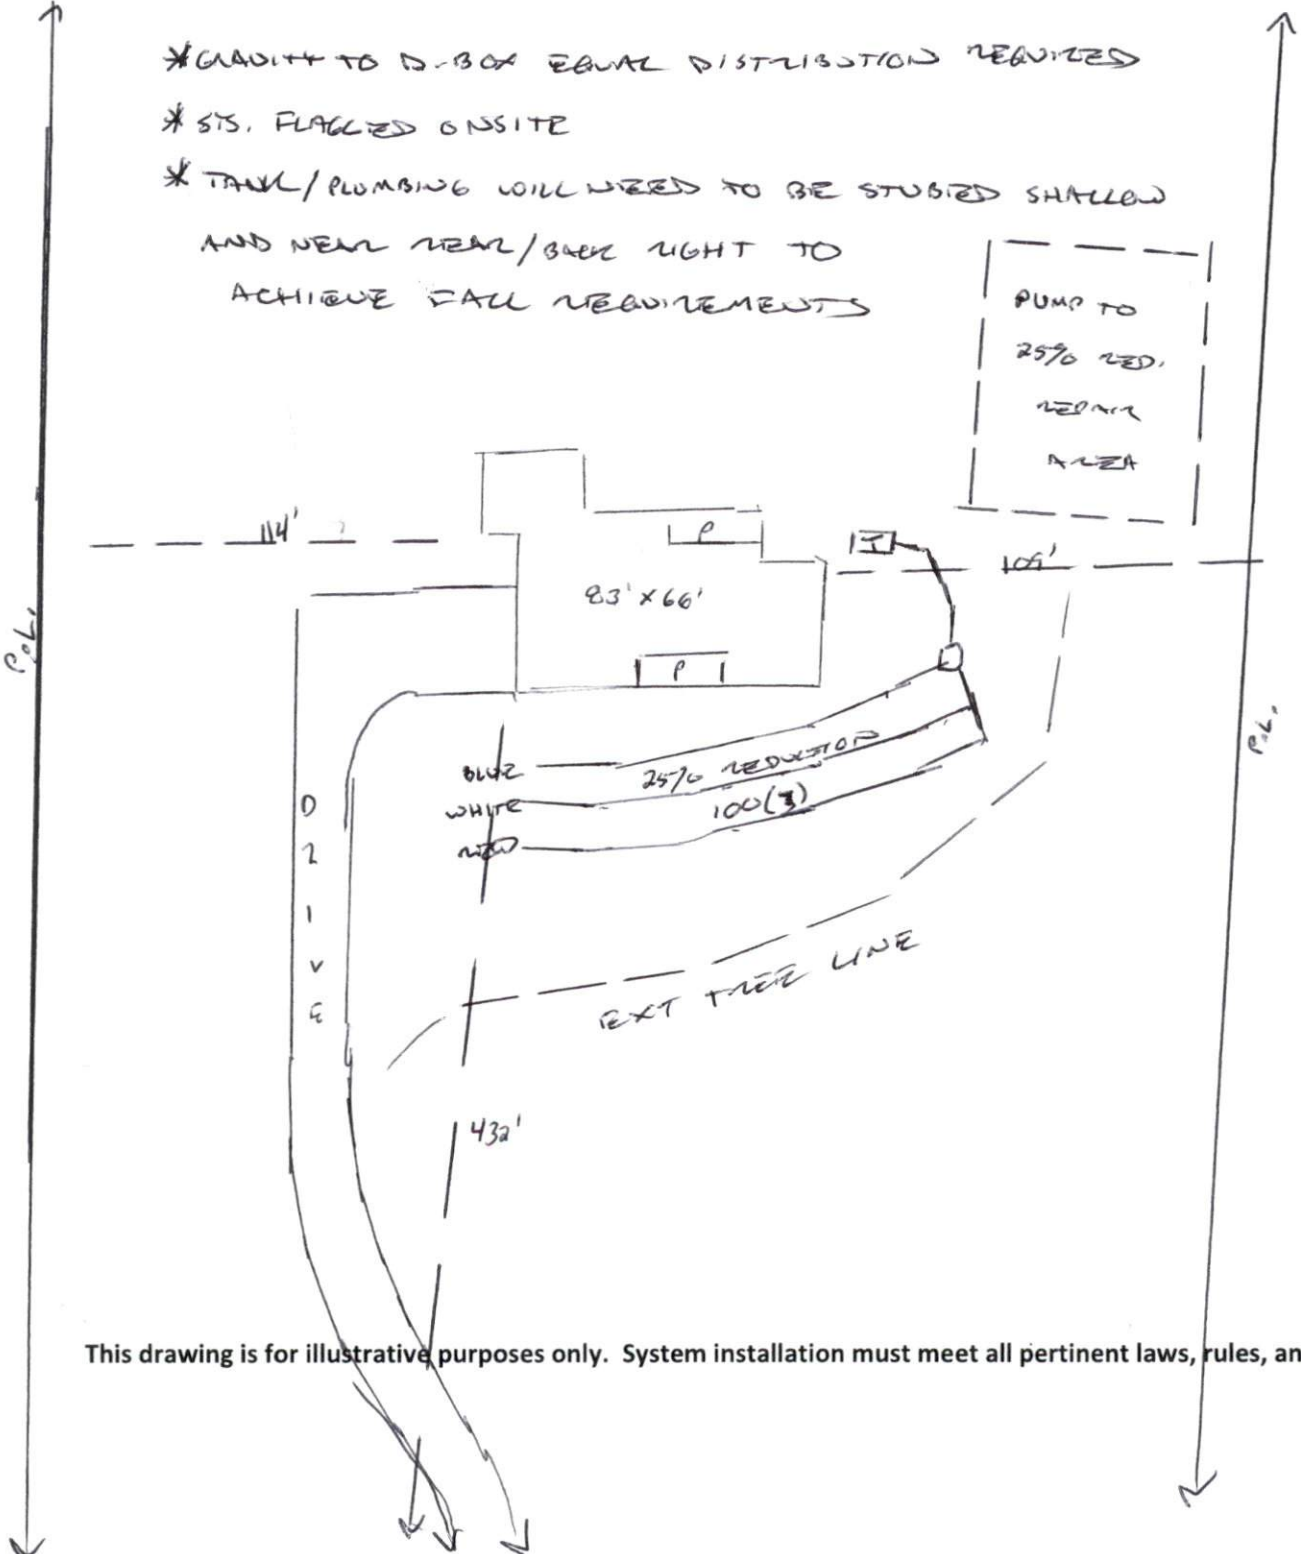 * GRAVITY TO D-BOX EQUAL DISTRIBUTION REQUIRED
* SYS. FLAGGED ONSITE
* TANK/PLUMBING WILL NEED TO BE STUBBED SHALLOW
AND NEAR REAR/BACK RIGHT TO
ACHIEVE FALL REQUIREMENTS
PUMP TO
25% RED.
REPAIR
AREA
114'
P
T
109'
83' X 66'
P.L.
P
P.L.
BLUE
25% REDUCTION
WHITE
100(3)
RED
DRIVE
EXT TREE LINE
432'
This drawing is for illustrative purposes only. System installation must meet all pertinent laws, rules, an